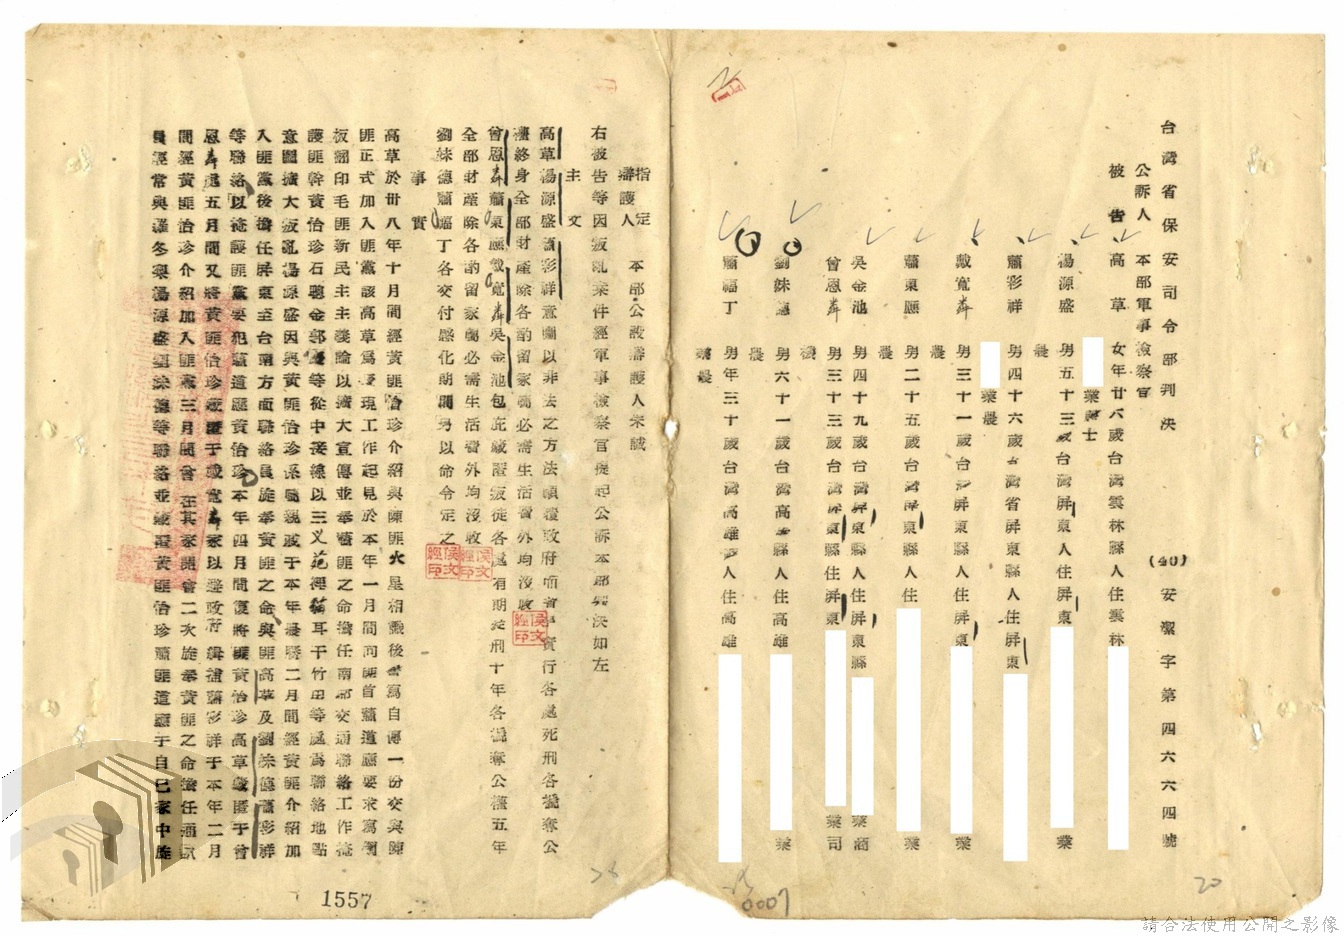 台灣省保安司令部判決
(40)安潔字第四六六四號
公訴人 本部軍事檢察官
被告 高草 女年廿八歲台灣雲林縣人住雲林
業護士
楊源盛 男五十三歲台灣屏東人住屏東 業
農
蕭彩祥 男四十六歲台灣省屏東縣人住屏東
業農
戴寬 男三十一歲台灣屏東縣人住屏東 業
農
蕭東應 男二十五歲台灣屏東縣人住 業
農
吳金池 男四十九歲台灣屏東縣人住屏東縣 業商
曾恩 男三十三歲台灣屏東縣住屏東 業司
機
劉妹德 男六十一歲台灣高雄縣人住高雄 業
農
蕭福丁 男年三十歲台灣高雄 人住高雄
業農
指定
辯護人 本部公設辯護人宋誠
右被告等因叛亂案件經軍事檢察官提起公訴本部判決如左
主文
高草楊源盛蕭彩祥意圖以非法之方法顛覆政府而着手實行各處死刑各褫奪公
權終身全部財產除各酌留家屬必需生活費外均沒收
曾恩 蕭東應戴寬 吳金池包庇藏匿叛徒各處有期徒刑十年各褫奪公權五年
全部財產除各酌留家屬必需生活費外均沒收
劉妹德蕭福丁各交付感化期間另以命令定之
侯文經印
侯文經印
侯文經印
事實
高草於卅八年十月間經黃匪怡珍介紹與陳匪火星相識後書寫自傳一份交與陳
匪正式加入匪黨該高草為表現工作起見於本年一月間向匪首蕭道應要求寫鋼
板翻印毛匪新民主主義論以擴大宣傳並奉叛匪之命擔任南部交通聯絡工作掩
護匪幹黃怡珍石聰金郭 等從中接線以三义苑裡貓耳干竹田等處為聯絡地點
意圖擴大叛亂楊源盛因與黃匪怡珍係屬親戚于本年農曆二月間經黃匪介紹加
入匪黨後擔任屏東至台南方面聯絡員旋奉黃匪之命與匪高草及劉妹德蕭彩祥
等聯絡以掩護匪黨要犯蕭道應黃怡珍本年四月間復將匪黃怡珍高草藏匿于曾
恩 處五月間又將黃匪怡珍藏匿于戴寬 家以避政府緝捕蕭彩祥于本年二月
間經黃匪怡珍介紹加入匪黨三月間會 在其家開會二次旋奉黃匪之命擔任通訊
員經常與羅冬 楊源盛劉妹德等聯絡並藏匿黃匪怡珍蕭匪道應于自己家中旋
1557
0007
20
請合法使用公開之影像